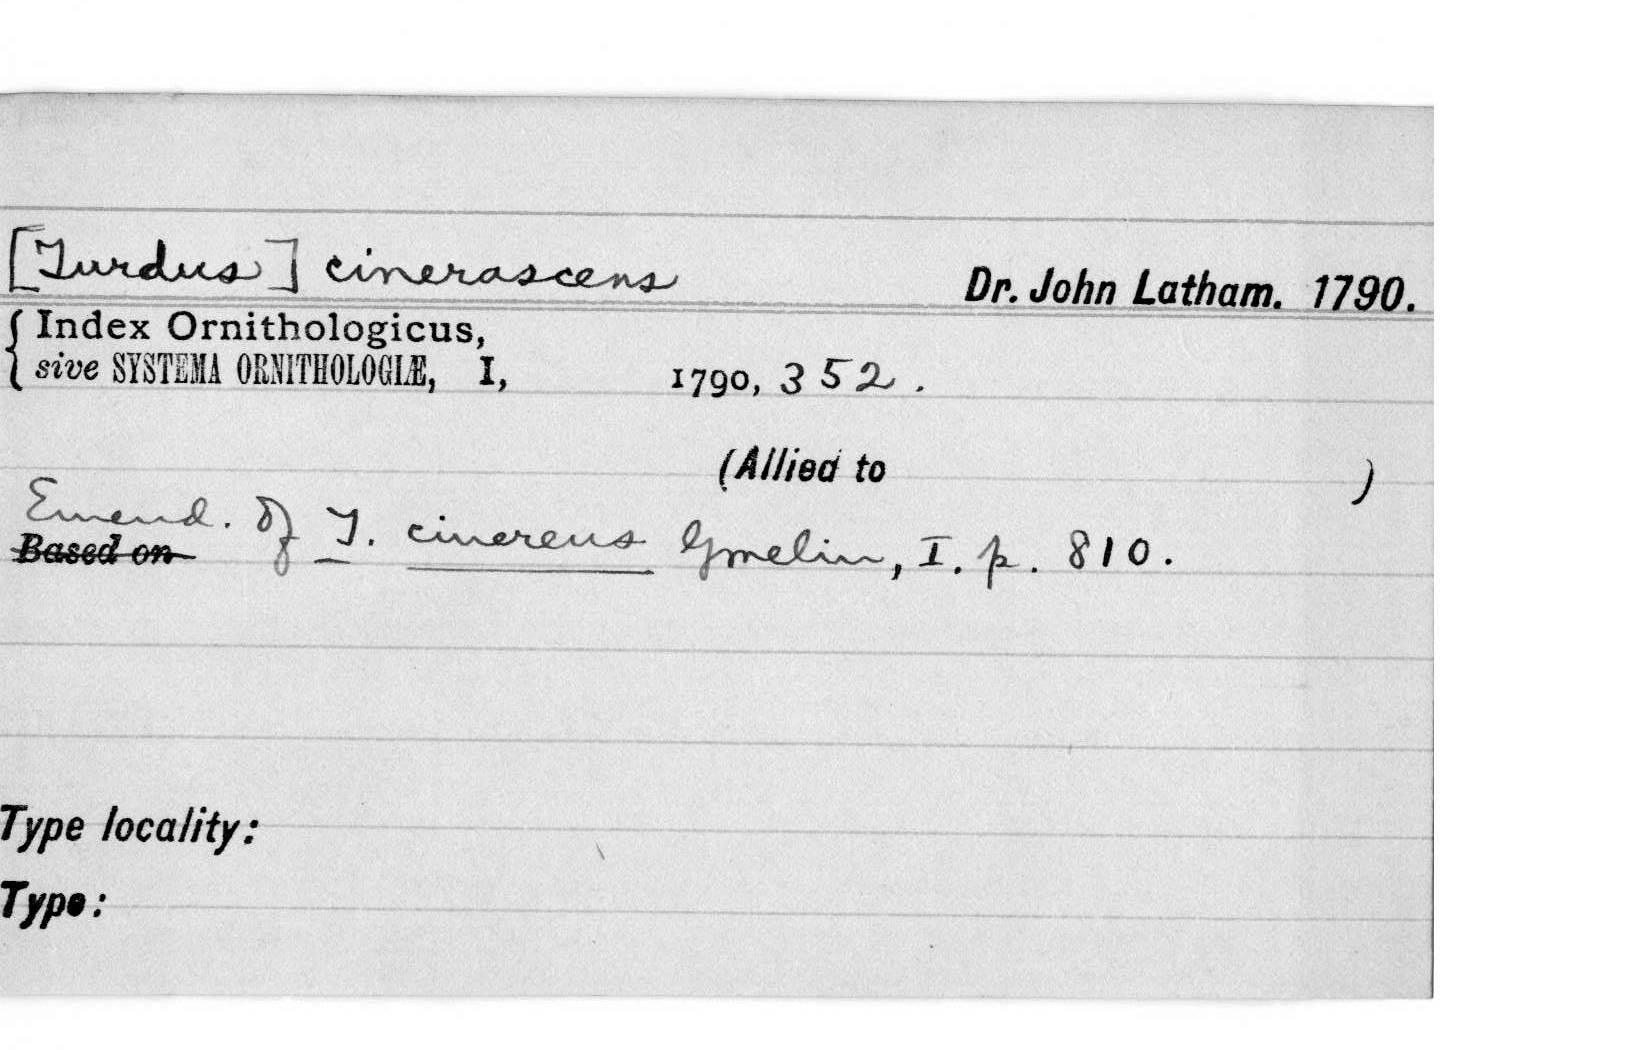 [Turdus] cinerascens Dr. John Latham. 1790.
{ Index Ornithologicus,
sive SYSTEMA ORNITHOLOGIÆ, I, 1790, 352.
(Allied to )
Emend. of T. cinereus Gmelin, I. p. 810.
Based on
Type locality:
Type: